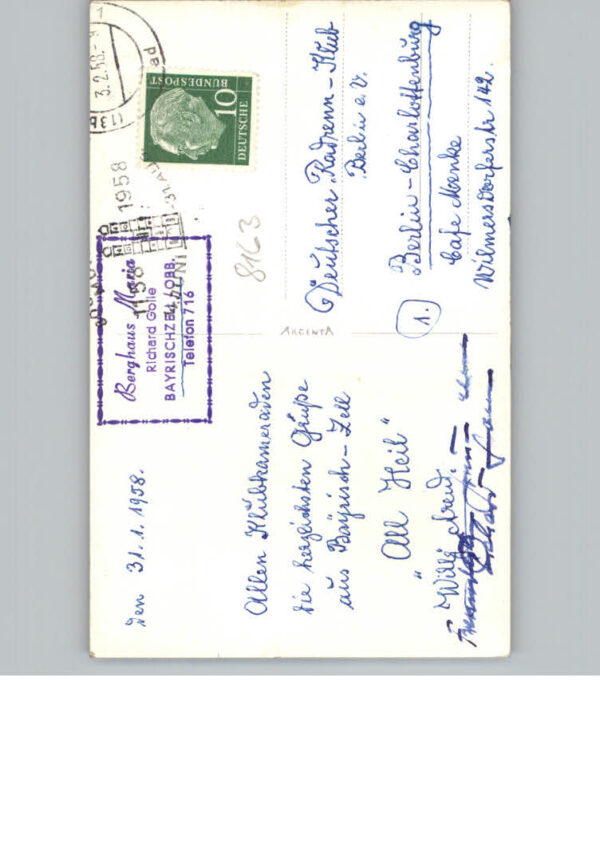 den 31.1.1958.
Allen Klubkameraden
die herzlichsten Grüße
aus Bayrisch-Zell
"All Heil"
Willy
Berghaus Maria
Richard Golle
BAYRISCHZELL/OBB.
Telefon 716
ARGENTA
8163
3.2.58
1958
DEUTSCHE
BUNDESPOST
10
Deutscher Radrenn-Klub
Berlin e.V.
Berlin-Charlottenburg
1.
Cafe Menke
Wilmersdorferstr 142.